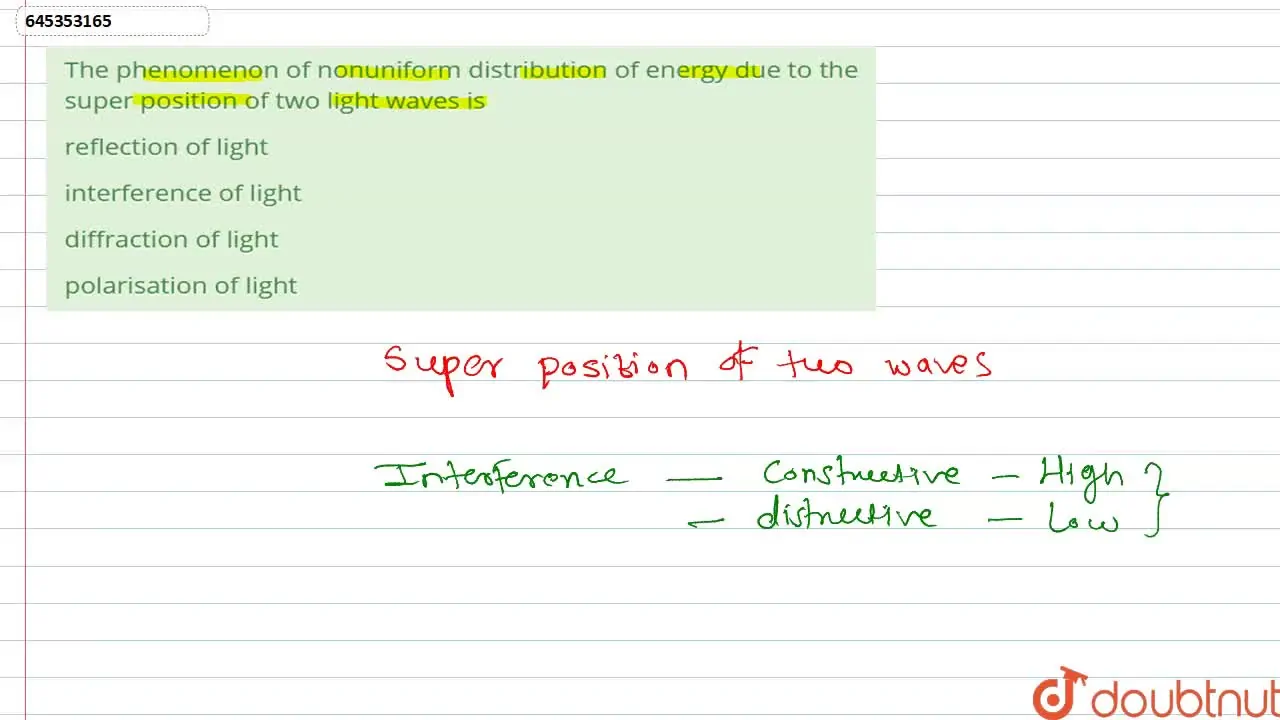 645353165
The phenomenon of nonuniform distribution of energy due to the
super position of two light waves is
reflection of light
interference of light
diffraction of light
polarisation of light
Super position of two waves
Interference — Constructive — High
— distructive — Low
doubtnut